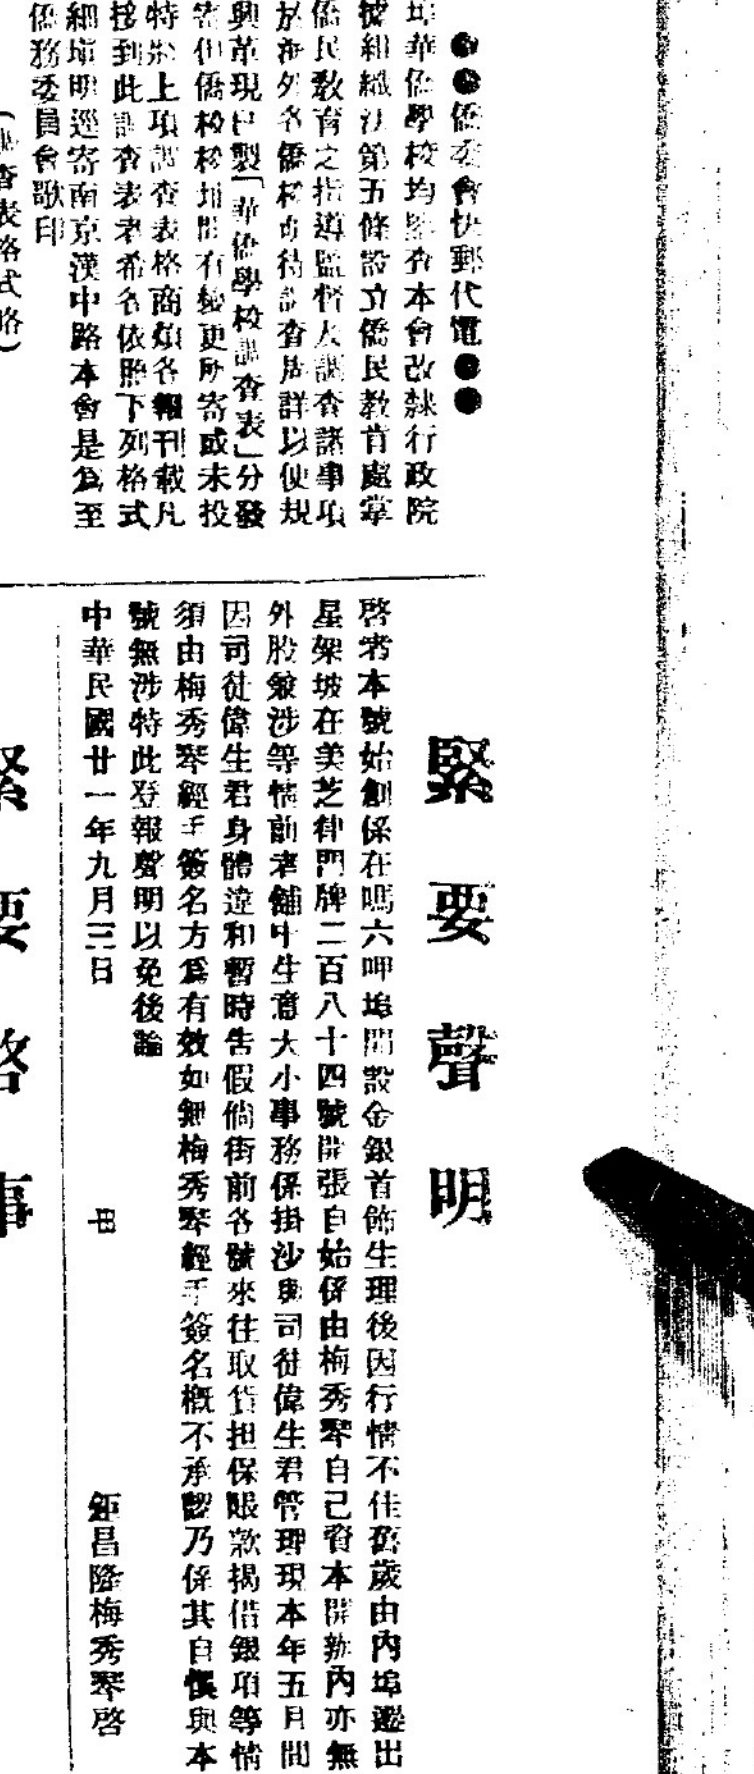 ●●僑委會快郵代電●●
埠華僑學校均鑒查本會改隸行政院
據組織法第五條設立僑民教育處掌
僑民敎育之指導監督及調查諸事項
於海外各僑校亟待調查周詳以便規
興革現已製「華僑學校調查表」分發
寄但僑校校址間有變更所寄或未投
特將上項調查表格商煩各報刊載凡
接到此調查表者希各依照下列格式
細填明逕寄南京漢中路本會是爲至
僑務委員會歌印
(調查表格式略)
緊要聲明
啓者本號始創係在嗎六呷埠開設金銀首飾生理後因行情不佳舊歲由內埠遷出
星架坡在美芝律門牌二百八十四號開張自始係由梅秀琴自己資本開辦內亦無
外股兼涉等情前者舖中生意大小事務係掛沙與司徒偉生君管理現本年五月間
因司徒偉生君身體違和暫時告假倘街前各號來往取貨担保賬款揭借銀項等情
須由梅秀琴經手簽名方爲有效如無梅秀琴經手簽名概不承認乃係其自悞與本
號無涉特此登報聲明以免後論
中華民國廿一年九月三日
鉅昌隆梅秀琴啓
緊要啓事